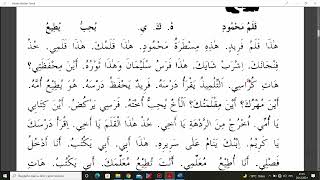 قَلَمُ مَحْمُودٍ ۃ. كَ ي يُحِبُّ يُطِيعُ
هٰذَا قَلَمُ فَرِيدٍ. هٰذِهِ مِسْطَرَةُ مَحْمُودٍ. هٰذَا قَلَمُكَ. هٰذَا قَلَمِي. خُذْ
فِنْجَانَكَ. اِشْرَبْ شَايَكَ. هٰذَا فَرَسُ سُلَيْمَانَ وَهٰذَا ثَوْرُهُ. أَيْنَ مِحْفَظَتِي؟
هَاتِ كُرَّاسِي. التِّلْمِيذُ يَقْرَأُ دَرْسَهُ. فَرِيدٌ يَحْفَظُ دَرْسَهُ. هُوَ يُطِيعُ أُمَّهُ.
أَيْنَ مُهْرُكَ؟ أَيْنَ مِقْلَمَتُكَ؟ اَلْأَخُ يُحِبُّ أُخْتَهُ. فَرَسِي يَرْكُضُ. أَيْنَ كِتَابِي
يَا أُمِّي. اُخْرُجْ مِنَ الرَّدْهَةِ يَا أَخِي. خُذْ هٰذَا الْقَلَمَ يَا أَخِي. اِقْرَأْ دَرْسَكَ
يَا كَرِيمُ. إِبْنُكَ يَنَامُ عَلَى سَرِيرِهِ. هٰذَا أَبِي. أَبِي يَكْتُبُ. أَنَا أَدْخُلُ
فَصْلِي. أَنَا أُطِيعُ مُعَلِّمِي. أَنْتَ تُطِيعُ مُعَلِّمَكَ. أَبِي يَكْتُبُ. هَاتِ